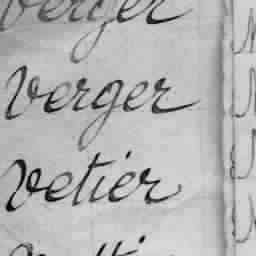 Verger
Verger
Vetier